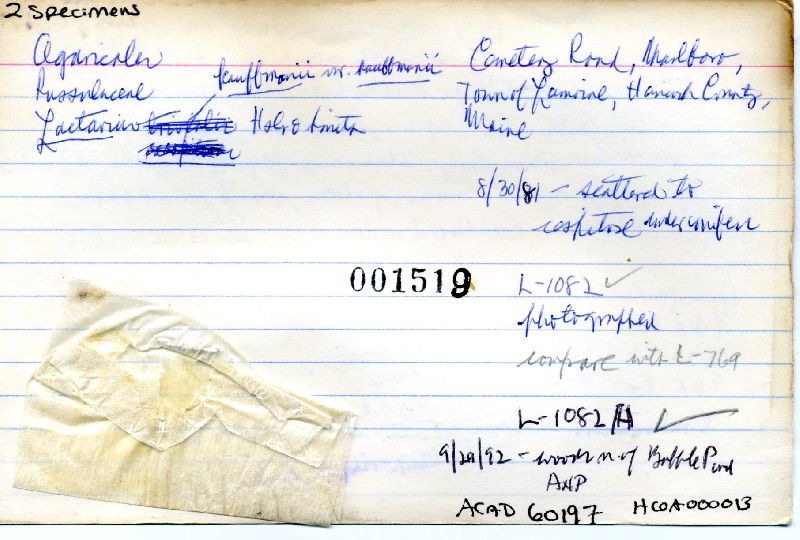 2 Specimens
Agaricales
Russulaceae
kauffmanii var. kauffmanii
Lactarius Hesler & Smith
Cemetery Road, Marlboro,
Town of Lamoine, Hancock County,
Maine
8/30/81 - scattered to
cespitose under conifers
001519
L-1082 ✓
photographed
compare with L-769
L-1082/H ✓
9/20/92 - woods n. of Bubble Pond
ANP
ACAD 60197 HCOA000013